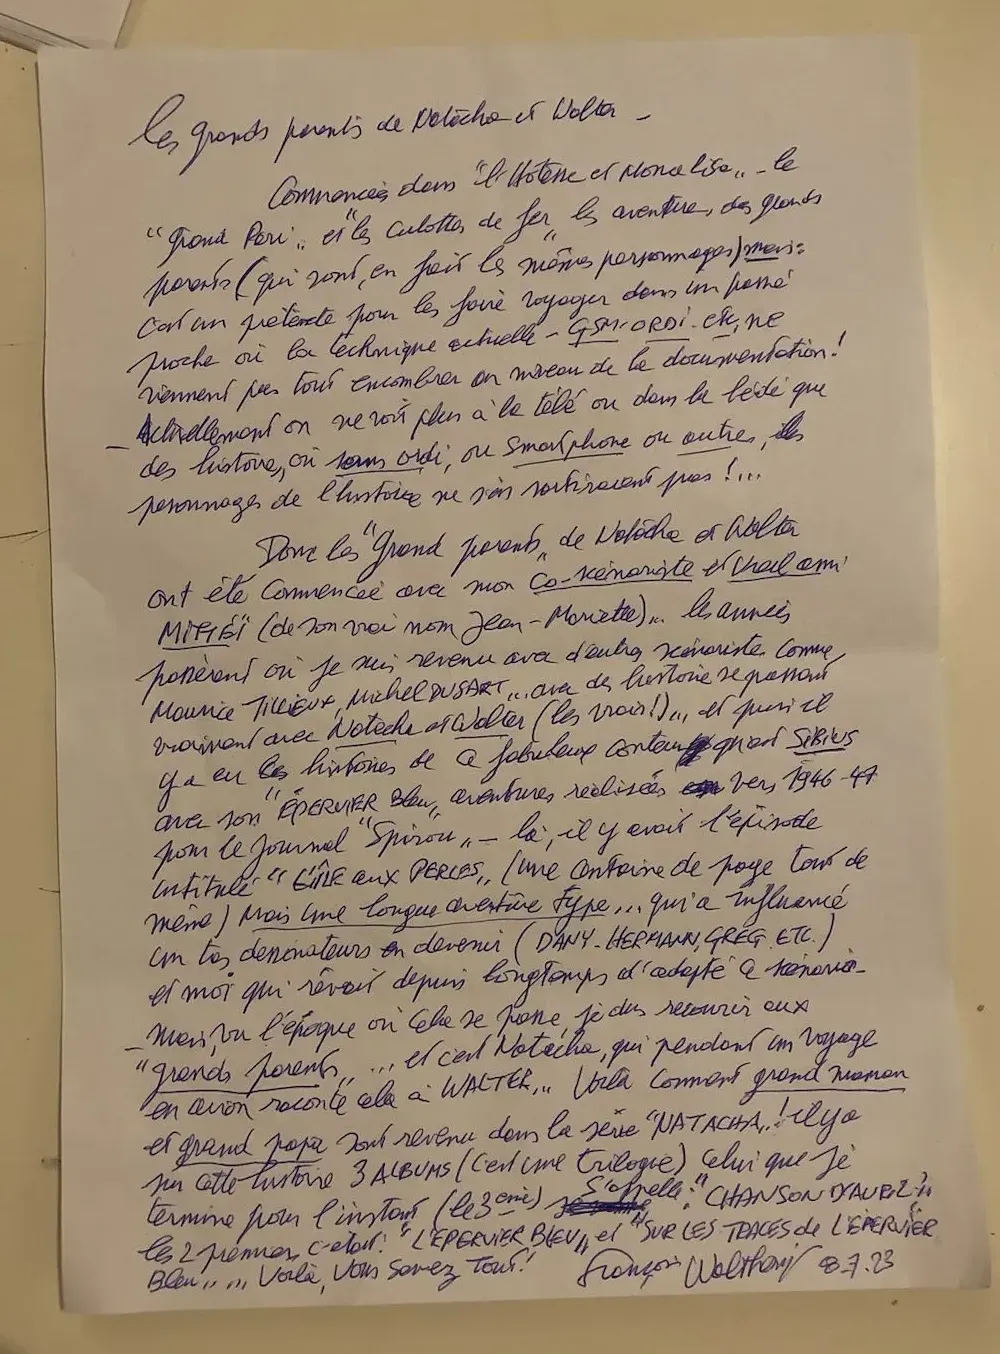 les grands parents de Natacha et Walter -
Commencées dans "l'Hôtesse et Mona Lisa" - le
"Grand Pari" et "les culottes de fer" les aventures des grands
parents (qui sont, en fait les mêmes personnages) mais:
c'est un prétexte pour les faire voyager dans un passé
proche où la technique actuelle - GSM - ORDI - etc, ne
viennent pas tout encombrer au niveau de la documentation!
- Actuellement on ne voit plus à la télé ou dans la bédé que
des histoires, où sans ordi, ou smartphone ou autres, les
personnages de l'histoire ne s'en sortiraient pas!...
Donc les "Grand parents" de Natacha et Walter
ont été commencée avec mon co-scénariste et vieil ami
MITTÉÏ (de son vrai nom Jean-Mariette)... les années
passèrent où je suis revenu avec d'autres scénaristes comme
Maurice TILLIEUX, Michel DUSART... avec des histoire se passant
vraiment avec Natacha et Walter (les vrais!)... et puis il
y a eu les histoires de ce fabuleux conteur qu'est SIRIUS
avec son "ÉPERVIER Bleu" aventures réalisées vers 1946-47
pour le Journal "Spirou" - là, il y avait l'épisode
intitulé "L'ÎLE aux PERLES" (une centaine de page tout de
même) Mais une longue aventure type... qui a influencé
un tas dessinateurs en devenir (DANY - HERMANN, GREG. ETC.)
et moi qui rêvait depuis longtemps d'adapté ce scénario -
- Mais, vu l'époque où cela se passe, je dus recourir aux
"grands parents"... et c'est Natacha, qui pendant un voyage
en avion raconte cela à WALTER... Voilà comment grand maman
et grand papa sont revenu dans la série "NATACHA"! il y a
sur cette histoire 3 ALBUMS (c'est une trilogie) Celui que je
termine pour l'instant (le 3eme) s'appelle: "CHANSON D'AVRIL"
les 2 premiers c'était: "L'ÉPERVIER BLEU" et "SUR LES TRACES de L'ÉPERVIER
Bleu"... Voilà, vous savez tout! François Walthéry 8.7.23